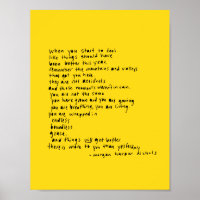 when you start to feel
like things should have
been better this year,
remember the mountains and valleys
that got you here.
they are not accidents
and those moments weren't in vain.
you are not the same
you have grown and you are growing
you are breathing, you are living
you are wrapped in
endless
boundless
grace
and things will get better
there is more to you than yesterday
- morgan harper nichols